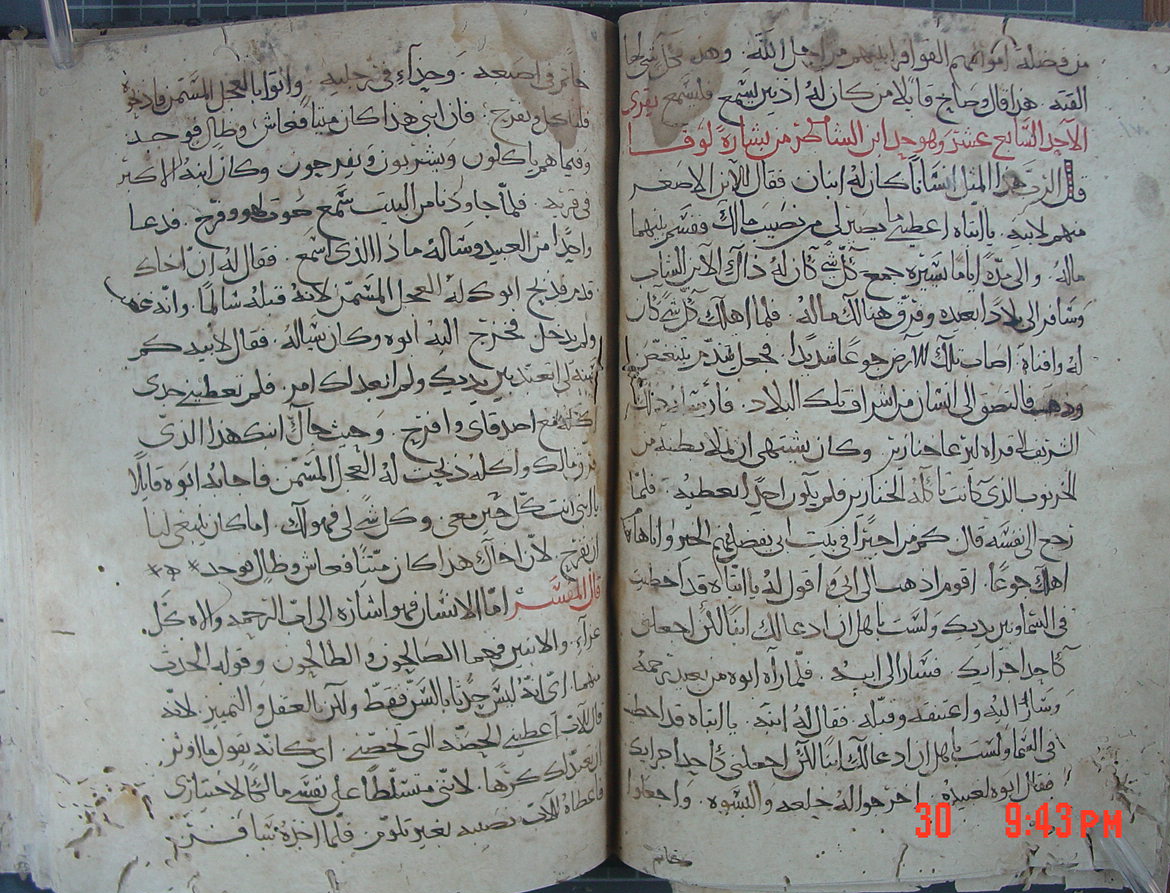 من فضله امواتهم القوا قرابينهم من اجل الله. وهذا
الفتنه. هذا قال وصاح قايلا من كان له اذنين يسمع فليسمع تقرى
الاحد السابع عشر وهو حد ابن الشاطر من بشارة لوقا
قال الرب هذا المثل انسانا كان له ابنان فقال الابن الاصغر
منهم لابيه. يا ابتاه اعطيني ما يصير لي من نصيب مالك فقسم بينهما
ماله. والى مدة اياما يسيرة جمع كل شي كان له ذاك الابن الشاب
وسافر الى بلاد بعيده وفرق هنالك ماله. فلما اهلك كل شي كان
له وافناه اصاب تلك الارض جوعا شديدا فجعل
وذهب فالتصق الى انسان من اشراف تلك البلاد. فارسله ذلك
الى قراه ليرعا خنازير وكان يشتهي ان يملا بطنه من
الخرنوب الذي كانت تاكله الخنازير فلم يكون احدا يعطيه. فلما
رجع الى نفسه قال كم من اجيرا في بيت ابي يفضل عنهم الخبز وانا هاهنا
اهلك جوعا اقوم اذهب الى ابي واقول له يا ابتاه قد اخطيت
في السما وبين يديك ولست باهل ان ادعا لك ابنا لكن اجعلني
كاحد اجرايك فسار الى ابيه. فلما راه ابوه من بعيد ترحمه
وسار اليه واعتنقه وقبله. فقال له ابنه. يا ابتاه قد اخطيت
في السما ولست باهل ان ادعا لك ابنا لكن اجعلني كاحد اجرايك
فقال ابوه لعبيده. اخرجوا له خلعه والبسوه. واجعلوا
خاتم
خاتم في اصبعه. وحذاء في رجليه واتوا بالعجل المسمن فاذبحوه
فلناكل ونفرح. فان ابني هذا كان ميتا فعاش وظال فوجد
وفيما هم ياكلون ويشربون ويفرحون وكان ابنه الاكبر
في قريه. فلما جا ودنا من البيت سمع صوت لهو وفرح. فدعا
واحدا من العبيد وساله ماذا الذي اسمع. فقال له ان اخاك
قدم فذبح ابوك له العجل المسمن لانه قبله سالما. وانه غضب
ولم يدخل فخرج اليه ابوه وكان يساله. فقال لابيه كم
سنه لي اتعبد بين يديك ولم ابعد لك امر فلم تعطيني جدى
كله مع اصدقاي وافرح. وحيث جاك ابنك هذا الذي
بذر مالك واكله ذبحت له العجل المسمن فاجابه ابوه قايلا
يا ابني انت كل حين معي وكل شي لي فهو لك. اما كان ينبغي لنا
ان نفرح. لان اخاك هذا كان ميتا فعاش وظال فوجد
قال المفسر اما الانسان فهو اشاره الى اب الرحمه والاه كل
عزاء. والابنين فهما الصالحون والطالحون وقوله الحدث
منهما. اي انه ليس حدثا بالسن فقط ولكن بالعقل والتمييز. لانه
قال للاب اعطيني الحصه التي تخصني. اي كانه يقول ما اوثر
ان نعبدك كرها. لانني متسلطا على نفسي مالكا لاختياري
فاعطاه الاب نصيبه بغير تلوم. فلما اخذه سافر
30 9:43PM